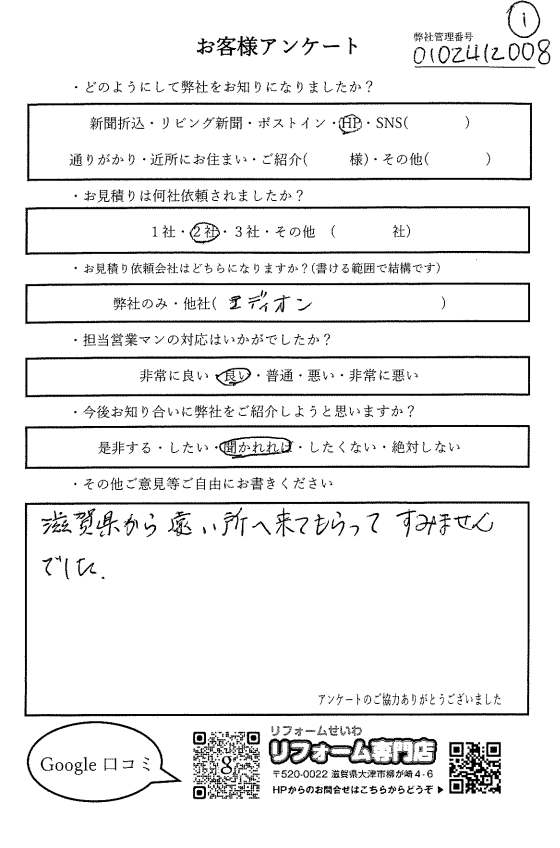 ①
お客様アンケート
弊社管理番号
0102412008
・どのようにして弊社をお知りになりましたか？
新聞折込・リビング新聞・ポストイン・HP・SNS(　　　　)
通りがかり・近所にお住まい・ご紹介(　　　様)・その他(　　　　)
・お見積りは何社依頼されましたか？
１社・２社・３社・その他　(　　　　社)
・お見積り依頼会社はどちらになりますか？(書ける範囲で結構です)
弊社のみ・他社(　エディオン　　　　　　　　)
・担当営業マンの対応はいかがでしたか？
非常に良い・良い・普通・悪い・非常に悪い
・今後お知り合いに弊社をご紹介しようと思いますか？
是非する・したい・聞かれれば・したくない・絶対しない
・その他ご意見等ご自由にお書きください
滋賀県から遠い所へ来てもらって すみません
でした.
アンケートのご協力ありがとうございました
Google 口コミ
g
リフォームせいわ
リフォーム専門店
〒520-0022 滋賀県大津市柳が崎4-6
HPからのお問合せはこちらからどうぞ▶